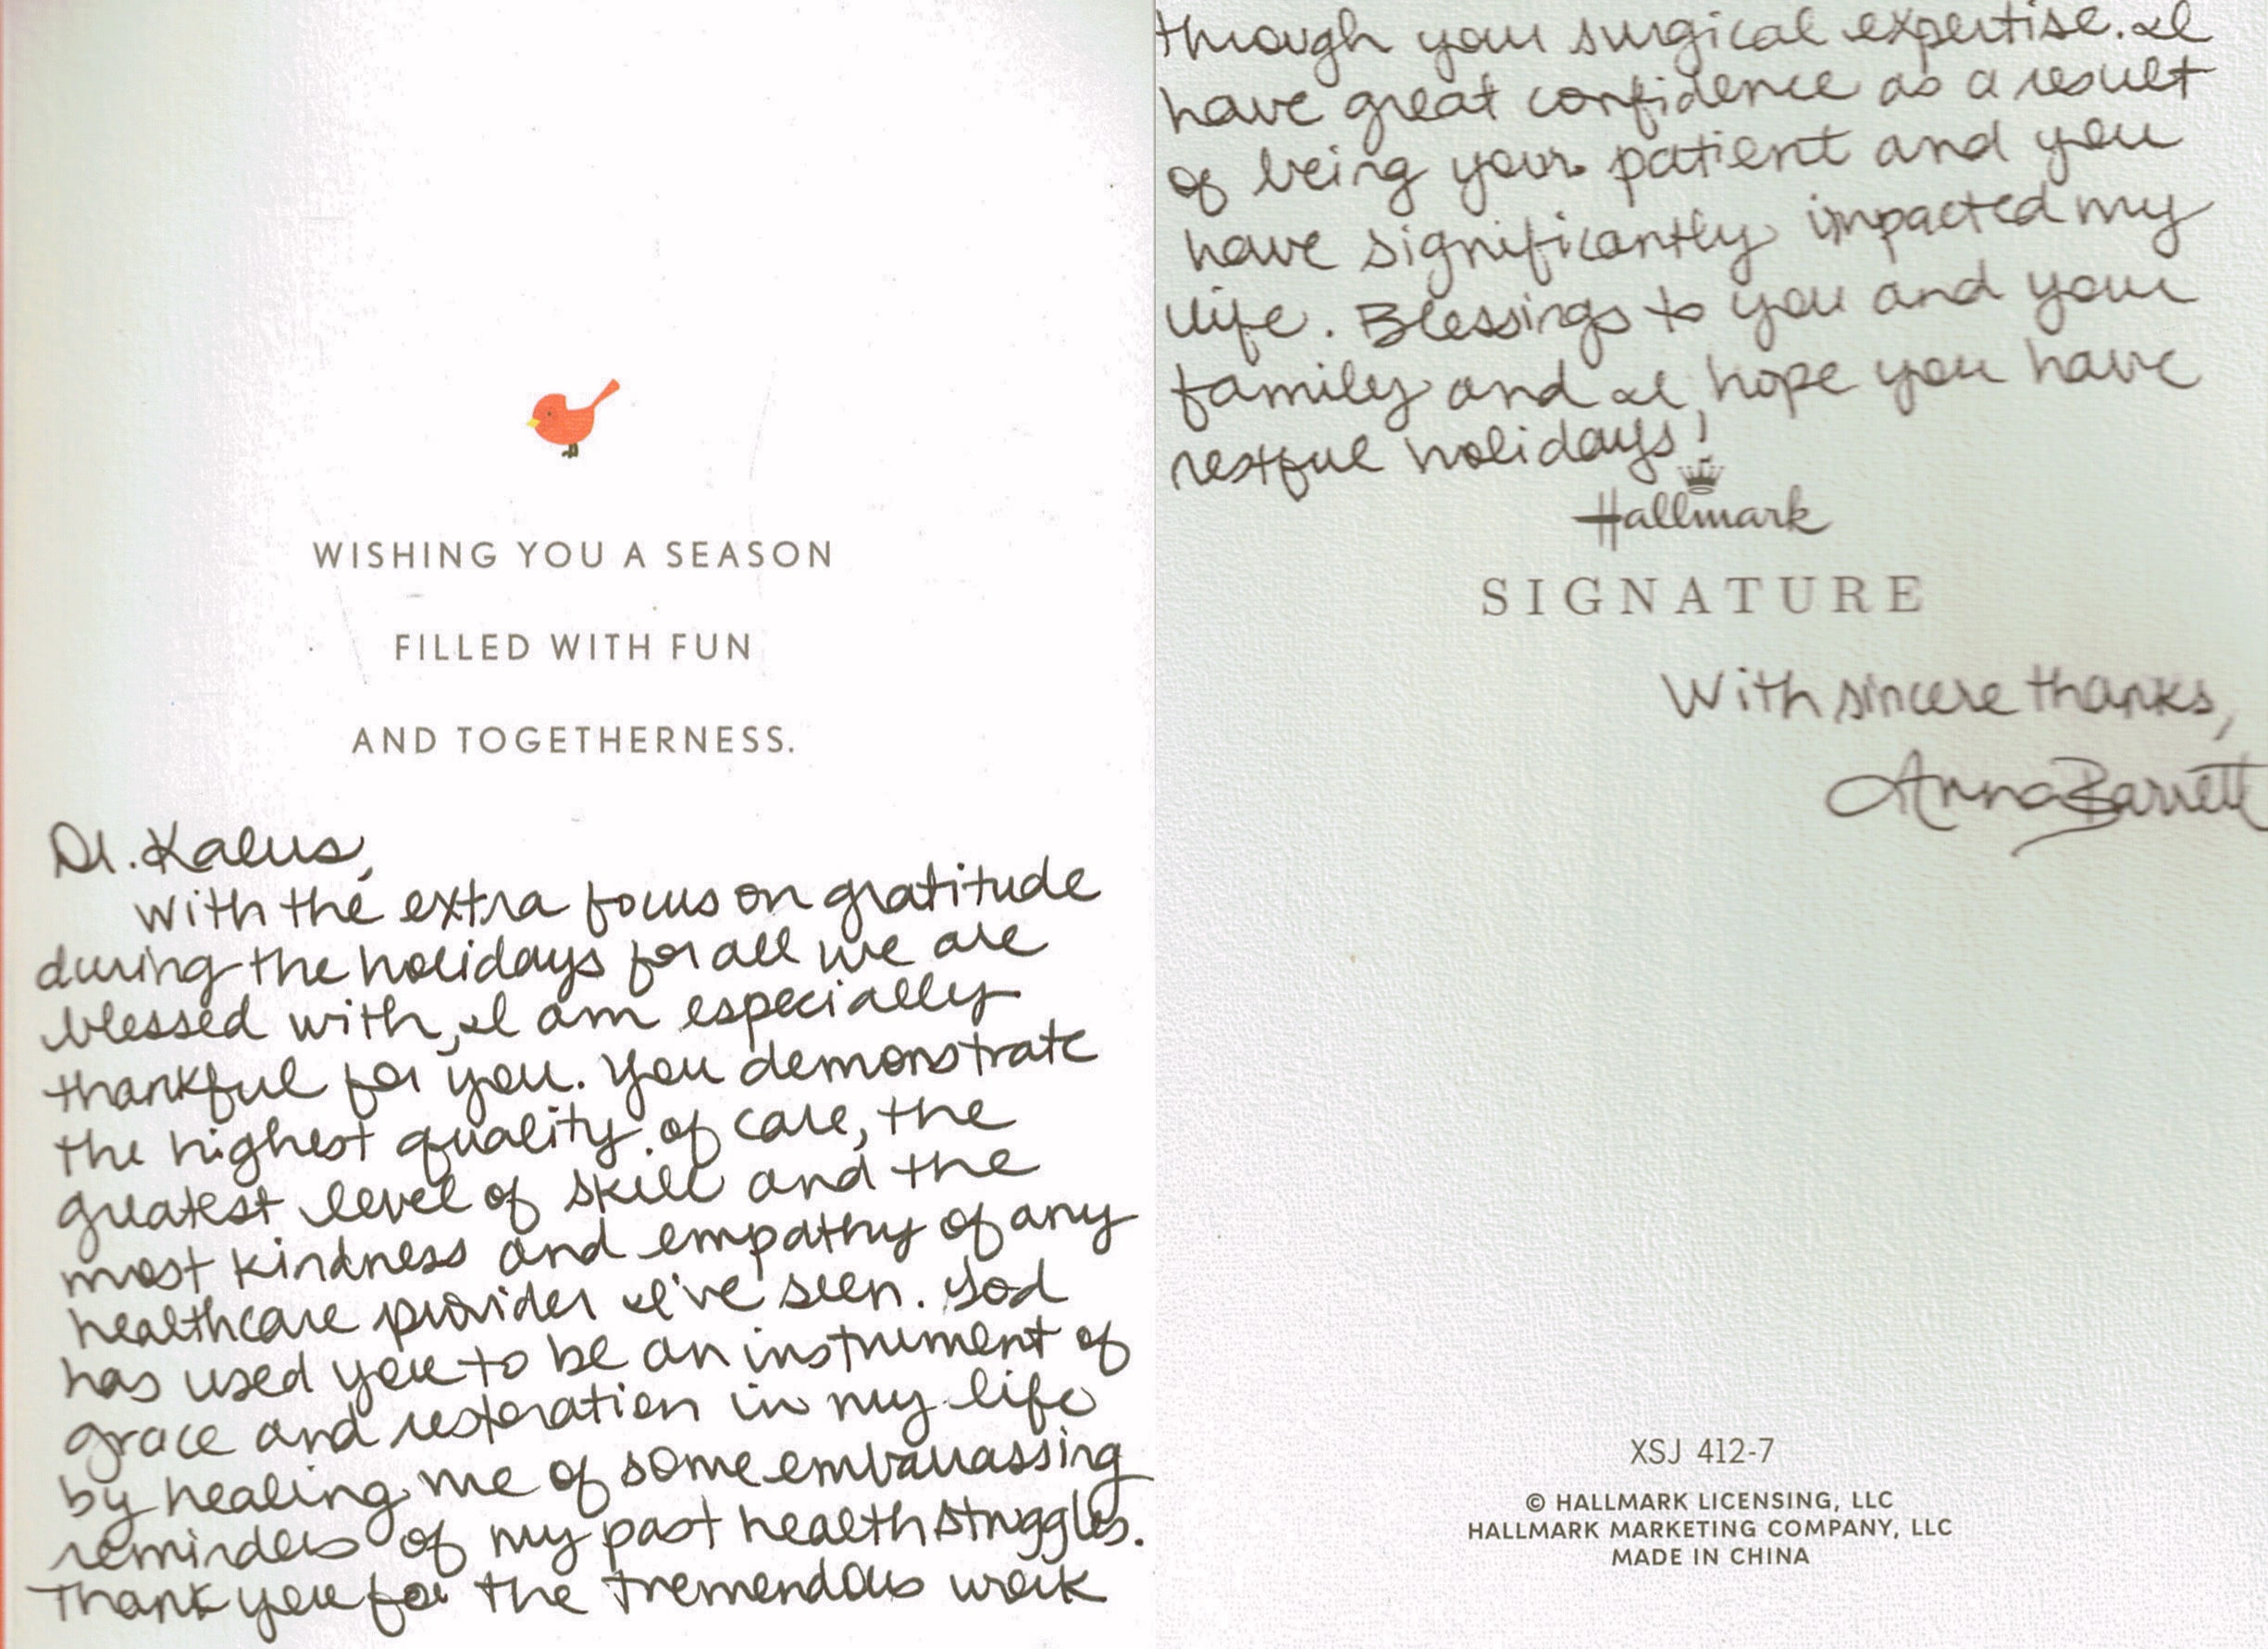 WISHING YOU A SEASON
FILLED WITH FUN
AND TOGETHERNESS.
Dr. Kalus,
With the extra focus on gratitude
during the holidays for all we are
blessed with, I am especially
thankful for you. You demonstrate
the highest quality of care, the
greatest level of skill and the
most kindness and empathy of any
healthcare provider I've seen. God
has used you to be an instrument of
grace and restoration in my life
by healing me of some embarrassing
reminders of my past health struggles.
Thank you for the tremendous work
through your surgical expertise. I
have great confidence as a result
of being your patient and you
have significantly impacted my
life. Blessings to you and your
family and I hope you have
restful holidays!
Hallmark
SIGNATURE
With sincere thanks,
Anna Barrett
XSJ 412-7
© HALLMARK LICENSING, LLC
HALLMARK MARKETING COMPANY, LLC
MADE IN CHINA